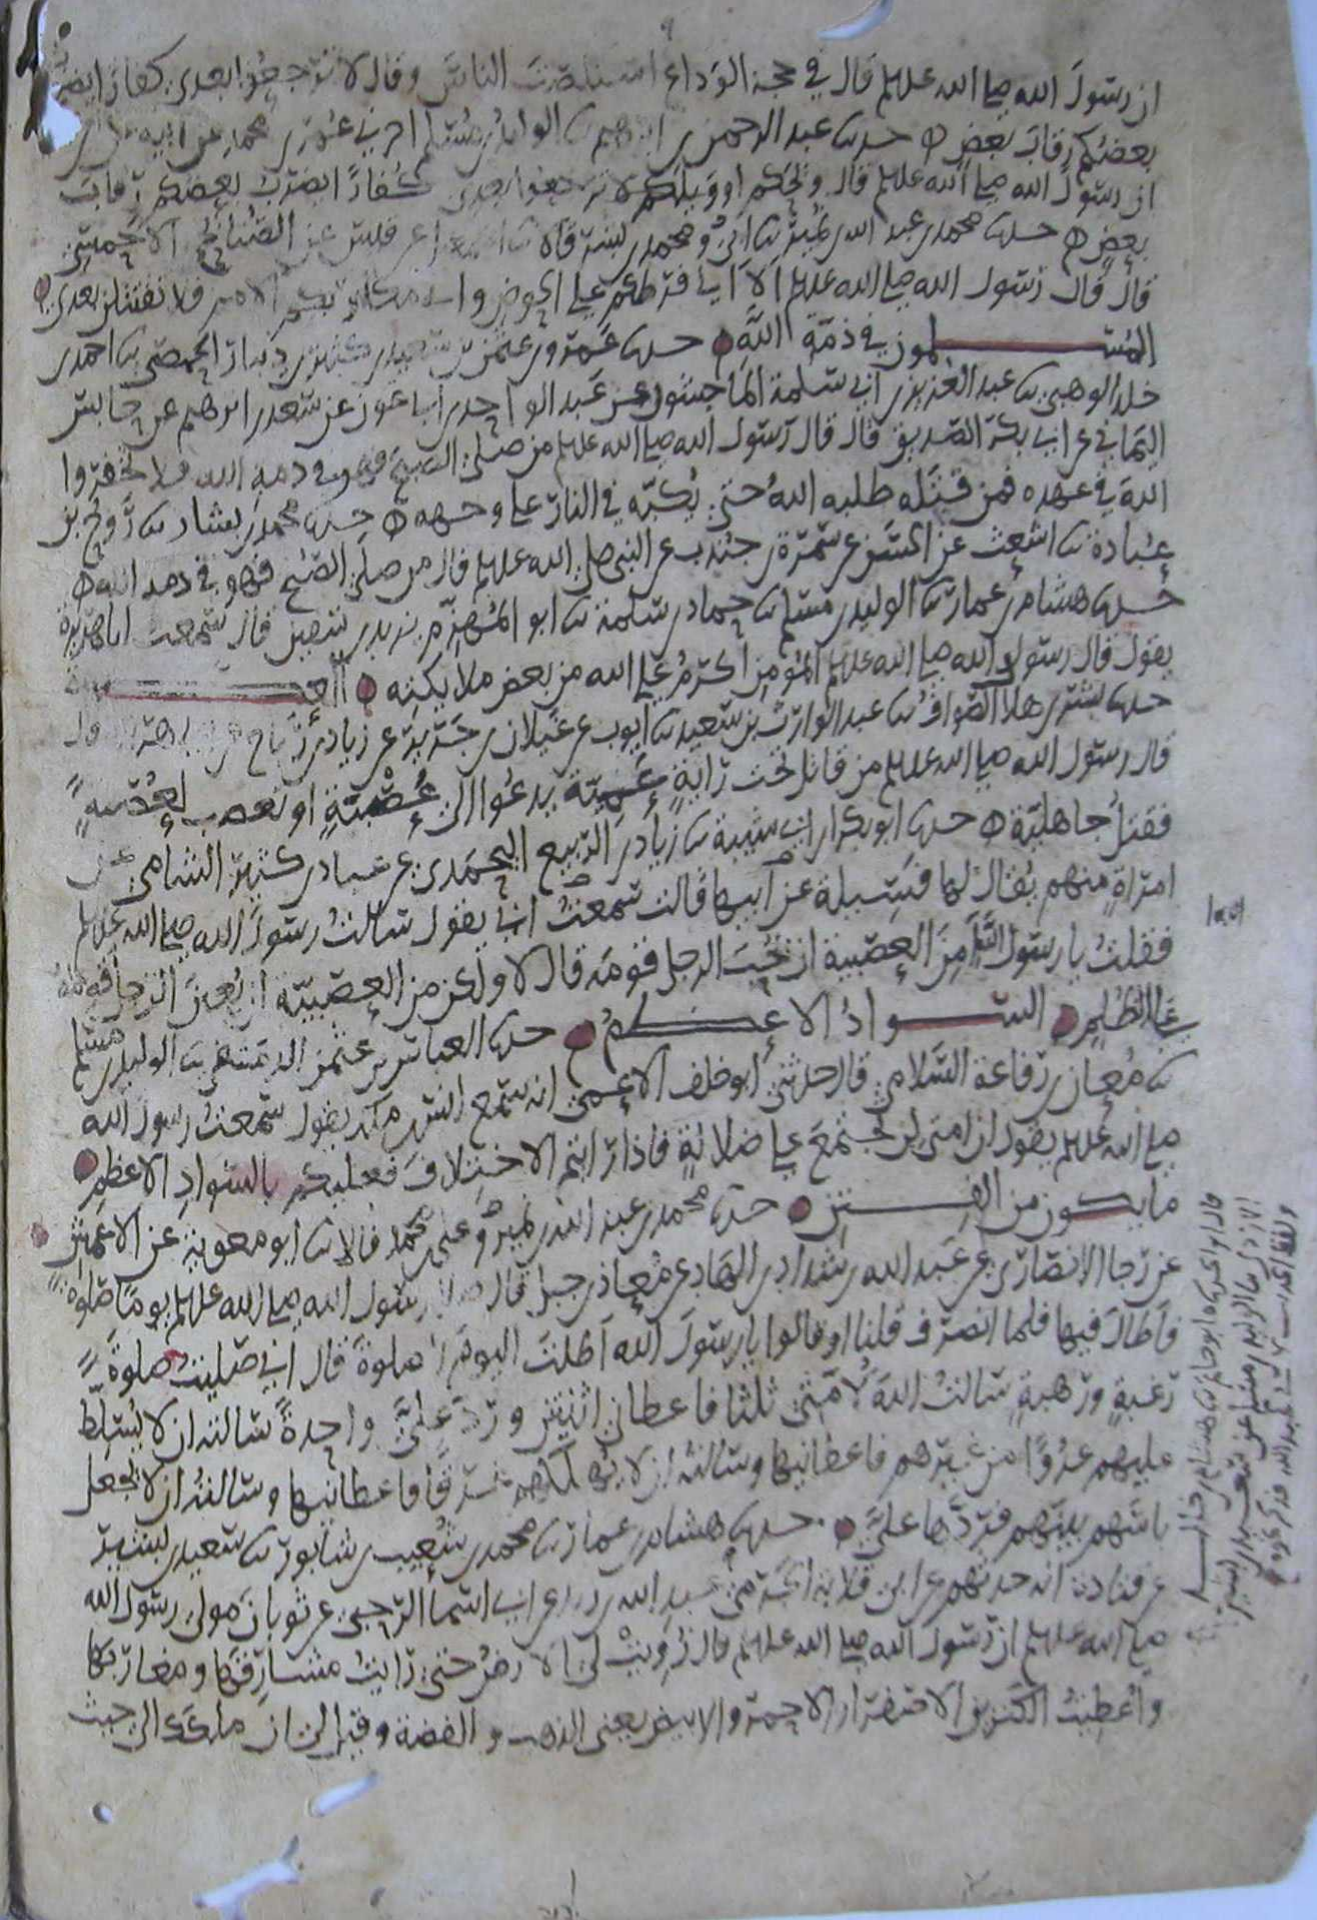 ان رسول الله صلى الله علىه قال في حجة الوداع استنصت الناس وقال لا ترجعوا بعدي كفارا يضرب
بعضكم رقاب بعض ه حدثنا عبد الرحمن بن ابرهيم ثنا الوليد بن مسلم اخبرني عمر بن محمد عن ابيه
ان رسول الله صلى الله علىه قال ويحكم او ويلكم لا ترجعوا بعدي كفارا يضرب بعضكم رقاب
بعض ه حدثنا محمد بن عبد الله بن نمير ثنا ابي ومحمد بن بشر قالا ثنا اسمعيل عن قيس عن الصنابح الاحمسي
قال قال رسول الله صلى الله علىه الا اني فرطكم على الحوض واني مكاثر بكم الامم فلا تقتتلن بعدي
المسلمون في ذمة الله حدثنا عمرو بن عثمن بن سعيد بن كثير بن دينار الحمصي ثنا احمد بن
خلد الوهبي ثنا عبد العزيز بن ابي سلمة الماجشون عن عبد الواحد بن ابي عون عن سعد بن ابرهيم عن حابس
اليماني عن ابي بكر الصديق قال قال رسول الله صلى الله علىه من صلى الصبح فهو في ذمة الله فلا تخفروا
الله في عهده فمن قتله طلبه الله حتى يكبه في النار على وجهه ه حدثنا محمد بن بشار ثنا روح بن
عبادة ثنا اشعث عن الحسن عن سمرة بن جندب عن النبي صلى الله علىه قال من صلى الصبح فهو في ذمة الله ه
حدثنا هشام بن عمار ثنا الوليد بن مسلم ثنا حماد بن سلمة ثنا ابو المهزم يزيد بن سفين قال سمعت ابا هريرة
يقول قال رسول الله صلى الله علىه المؤمن اكرم على الله من بعض ملايكته العصبية
حدثنا بشر بن هلال الصواف ثنا عبد الوارث بن سعيد ثنا ايوب عن غيلان بن جرير عن زياد بن رياح عن ابي هريرة قال
قال رسول الله صلى الله علىه من قاتل تحت راية عمية يدعوا الى عصبية او تعصب لعصبية
فقتله جاهلية ه حدثنا ابو بكر بن ابي شيبة ثنا زياد بن الربيع اليحمدي عن عباد بن كثير الشامي عن
امراة منهم يقال لها فسيلة عن ابيها قالت سمعت ابي يقول سالت رسول الله صلى الله علىه
فقلت يا رسول الله امن العصبية ان يحب الرجل قومه قال لا ولكن من العصبية ان يعين الرجل قومه
على الظلم السواد الاعظم حدثنا العباس بن عثمن الدمشقي ثنا الوليد بن مسلم
ثنا معان بن رفاعة السلامي قال حدثني ابو خلف الاعمى انه سمع انس بن مالك يقول سمعت رسول الله
صلى الله علىه يقول ان امتي لن تجتمع على ضلالة فاذا رايتم الاختلاف فعليكم بالسواد الاعظم
ما يكون من الفتن حدثنا محمد بن عبد الله بن نمير وعلي بن محمد قالا ثنا ابو معوية عن الاعمش
عن رجا الانصاري عن عبد الله بن شداد بن الهاد عن معاذ بن جبل قال صلى رسول الله صلى الله علىه يوما صلوة
فاطال فيها فلما انصرف قلنا او قالوا يا رسول الله اطلت اليوم الصلوة قال اني صليت صلوة
رغبة ورهبة سالت الله لامتي ثلثا فاعطاني اثنتين ورد علي واحدة سالته ان لا يسلط
عليهم عدوا من غيرهم فاعطانيها وسالته ان لا يهلكهم غرقا فاعطانيها وسالته ان لا يجعل
باسهم بينهم فردها علي حدثنا هشام بن عمار ثنا محمد بن شعيب بن شابور ثنا سعيد بن بشير
عن قتادة انه حدثهم عن ابي قلابة الجرمي عبد الله بن زيد عن ابي اسما الرحبي عن ثوبان مولى رسول الله
صلى الله علىه ان رسول الله صلى الله علىه قال زويت لي الارض حتى رايت مشارقها ومغاربها
واعطيت الكنزين الاصفر او الاحمر والابيض يعني الذهب والفضة وقيل لي ان ملكك الى حيث